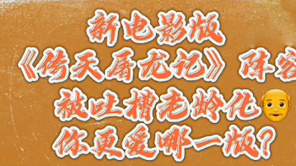 新电影版
《倚天屠龙记》阵容
被吐槽老龄化👴
你更爱哪一版?